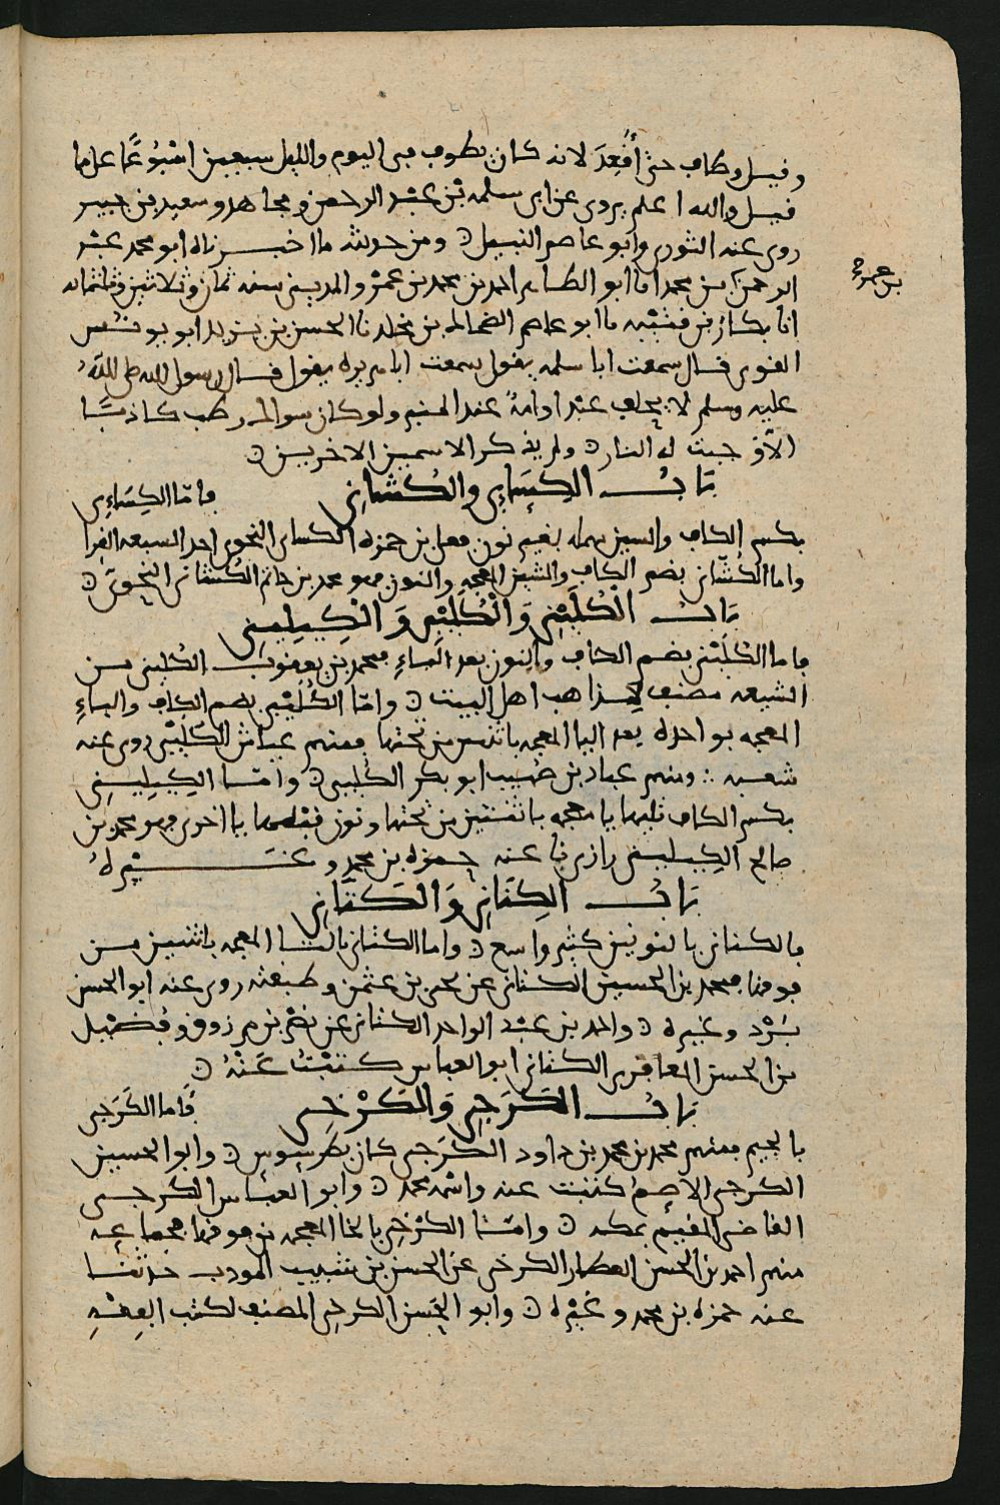 وقيل وطاف حتى أقعد لانه كان يطوف في اليوم والليل سبعين اسبوعا على ما
قيل والله اعلم يروى عن ابى سلمه بن عبد الرحمن ومجاهد وسعيد بن جبير
روى عنه الثورى وابو عاصم النبيل ومن حديثه ما اخبرناه ابو محمد عبد
الرحمن بن محمد انا ابو الطاهر احمد بن محمد بن عمرو المدينى سنه ثمان وثلاثين وثلثمائه
بن عمر
انا بكار بن قتيبه نا ابو عاصم الضحاك بن مخلد نا الحسن بن يزيد ابو يونس
القوى قال سمعت ابا سلمه يقول سمعت ابا هريره يقول قال رسول الله صلى الله
عليه وسلم لا يحلف عبد او امة عند المنبر ولو كان سواك رطب كاذبا
الا وجبت له النار ولم يذكر الاسمين الاخرين
باب الكِسَاءِى والكُشَانِى
فامّا الكِسَاءِى
بكسر الكاف والسين مهمله بغير نون فعلى بن حمزه الكساى النحوى احد السبعه القرا
واما الكشانى بضم الكاف والشين المعجمه والنون فهو محمد بن حاتم الكشانى النحوى
باب الكُلَيْنِى وَالْكُلَيْبِى وَالكِيلِينِى
فاما الكلينى بضم الكاف والنون بعد الياء فمحمد بن يعقوب الكلينى من
الشيعه مصنف لمذاهب اهل البيت وامّا الكُلَيْبِى بضم الكاف والباء
المعجمه بواحده بعد اليا المعجمه باثنتين من تحتها فمنهم عياش الكليبى روى عنه
شعبه ومنهم عباد بن صهيب ابو بكر الكليبى وامّا الكِيلِينِى
بكسر الكاف تليها يا معجمه باثنتين من تحتها ونون قبلها يا اخرى فهو محمد بن
صالح الكيلينى رازى نا عنه حمزه بن محمد وغيره
باب الكِنَانِى وَالكَتَّانِى
فالكنانى بالنونين كثير واسع واما الكتانى بالتا المعجمه باثنين من
فوقها فمحمد بن الحسين الكتانى عن يحى بن عثمن وطبقته روى عنه ابو الحسن
بَرْد وغيره واحمد بن عبد الواحد الكتانى عن نصر بن مرزوق وفضيل
بن الحسن المعافرى الكتانى ابو العباس كتبْتُ عَنْهُ
باب الكَرَجِى وَالكَرْخِى
فَاما الكَرَجى
بالجيم فمنهم محمد بن محمد بن داود الكرجى كان بطرسوس وابو الحسين
الكرجى الاصم كتبت عنه واسمه محمد وابو العباس الكرجى
القاضى المقيم بمكه وامّا الكَرْخِى بالخا المعجمه من فوقها فجماعه
منهم احمد بن الحسن العطار الكرخى عن الحسن بن شبيب المودب حدثنا
عنه حمزه بن محمد وغيره وابو الحَسن الكرخى المصنف لكتب الفقه